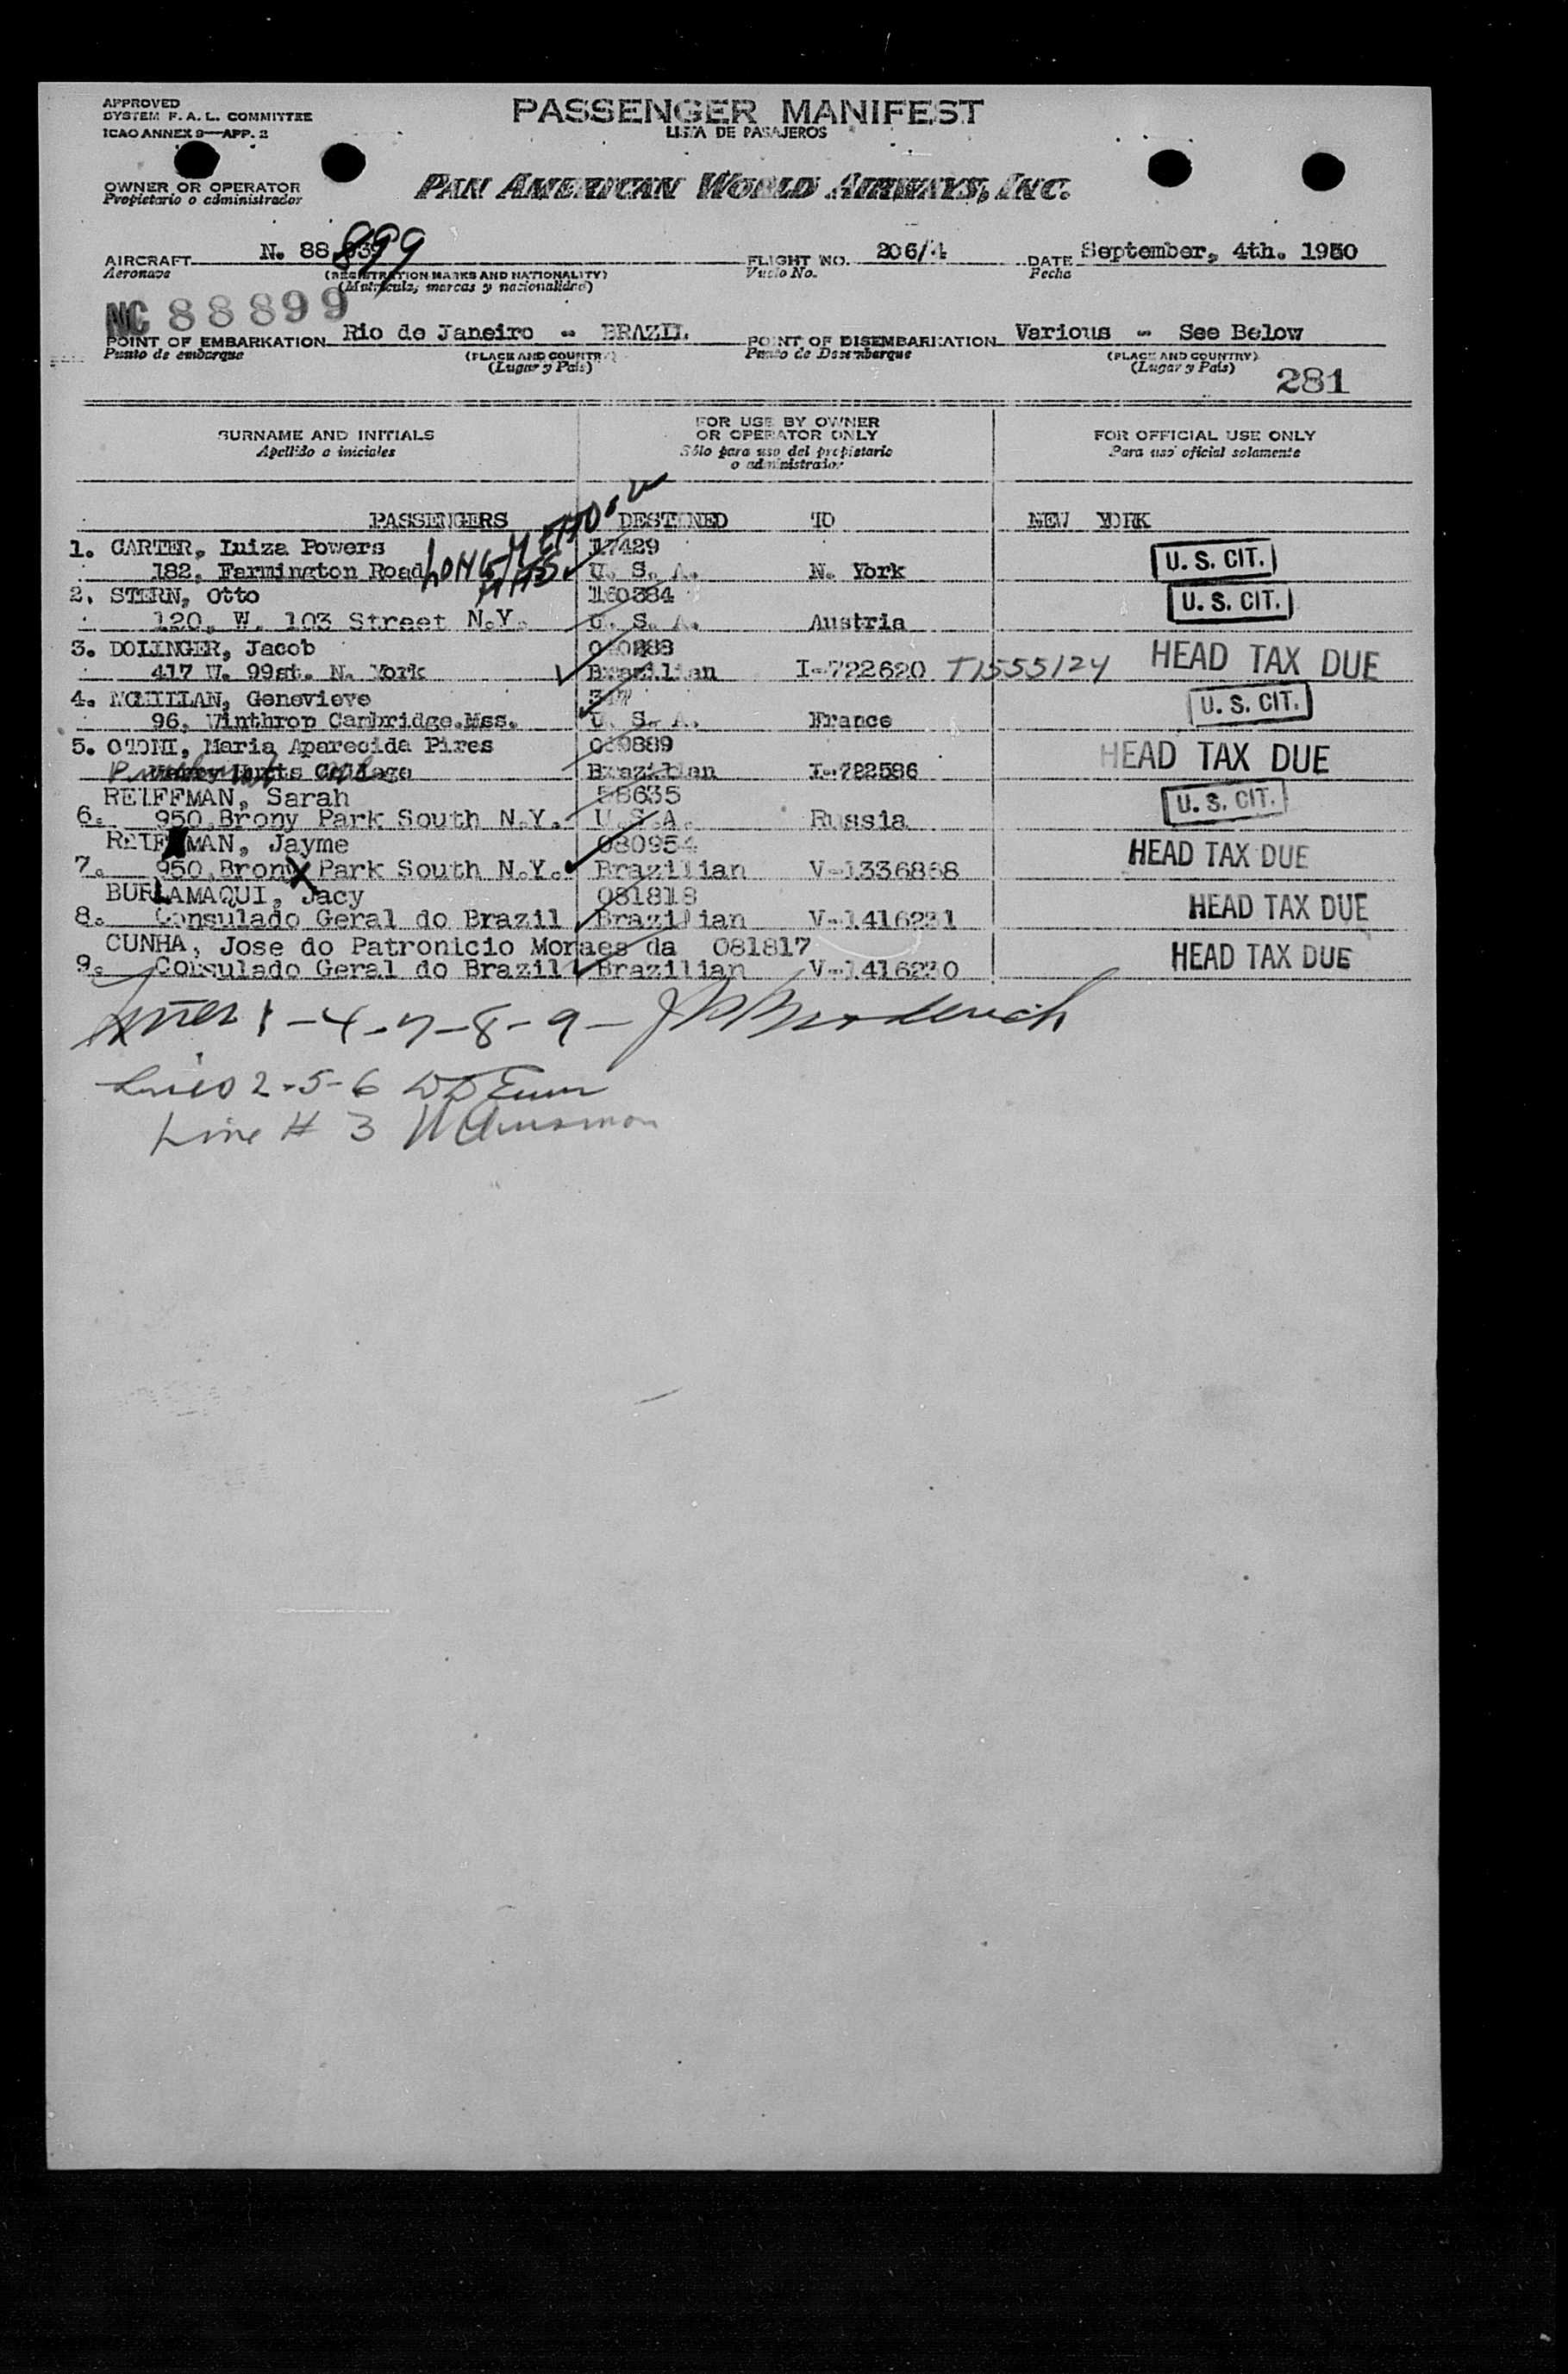 APPROVED
SYSTEM F. A. L. COMMITTEE
ICAO ANNEX 9—APP. 2
PASSENGER MANIFEST
LISTA DE PASAJEROS
OWNER OR OPERATOR
Propietario o administrador
PAN AMERICAN WORLD AIRWAYS, INC.
AIRCRAFT N. 88 899
Aeronave
(REGISTRATION MARKS AND NATIONALITY)
(Matricula, marcas y nacionalidad)
FLIGHT NO. 206/4
Vuelo No.
DATE September, 4th. 1950
Fecha
NC 88899
POINT OF EMBARKATION Rio de Janeiro - BRAZIL
Punto de embarque
(PLACE AND COUNTRY)
(Lugar y País)
POINT OF DISEMBARKATION Various - See Below
Punto de Desembarque
(PLACE AND COUNTRY)
(Lugar y País)
281
SURNAME AND INITIALS
Apellido e iniciales
FOR USE BY OWNER
OR OPERATOR ONLY
Sólo para uso del propietario
o administrador
FOR OFFICIAL USE ONLY
Para uso oficial solamente
PASSENGERS DESTINED TO NEW YORK
1. CARTER, Luiza Powers 17429
182, Farmington Road LONGMEADOW MASS. U. S. A. N. York U. S. CIT.
2. STERN, Otto 160384
120, W. 103 Street N.Y. U. S. A. Austria U. S. CIT.
3. DOLINGER, Jacob 080888
417 W. 99st. N. York Brazilian I-722620 T1555124 HEAD TAX DUE
4. MCMILLAN, Genevieve 347
96, Winthrop Cambridge.Mss. U. S. A. France U. S. CIT.
5. OTONI, Maria Aparecida Pires 080889
Brazilian I-722596 HEAD TAX DUE
REIFFMAN, Sarah 58635
6. 950 Brony Park South N.Y. U.S.A. Russia U. S. CIT.
REIFMAN, Jayme 080954
7. 950 Bronx Park South N.Y. Brazilian V-1336868 HEAD TAX DUE
BURLAMAQUI, Jacy 081818
8. Consulado Geral do Brazil Brazilian V-1416231 HEAD TAX DUE
CUNHA, Jose do Patronicio Moraes da 081817
9. Consulado Geral do Brazil Brazilian V-1416230 HEAD TAX DUE
Lines 1-4-7-8-9-
Lines 2-5-6
Line # 3